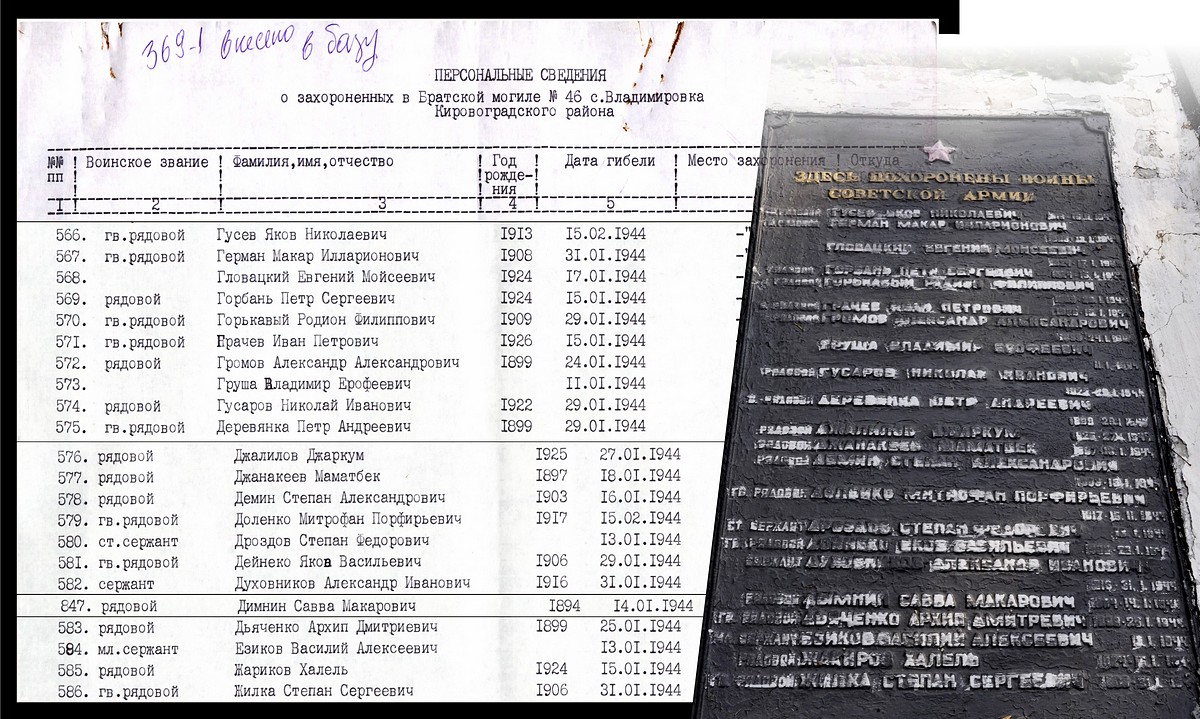 369-1 внесено в базу
ПЕРСОНАЛЬНЫЕ СВЕДЕНИЯ
о захороненных в Братской могиле № 46 с.Владимировка
Кировоградского района
№№ пп ! Воинское звание ! Фамилия,имя,отчество ! Год рожде- ния ! Дата гибели ! Место захоронения ! Откуда
I ! 2 ! 3 ! 4 ! 5 !
566. гв.рядовой Гусев Яков Николаевич I9I3 I5.02.I944 -"
567. гв.рядовой Герман Макар Илларионович I908 3I.0I.I944
568. Гловацкий Евгений Мойсеевич I924 I7.0I.I944
569. рядовой Горбань Петр Сергеевич I924 I5.0I.I944
570. гв.рядовой Горькавый Родион Филиппович I909 29.0I.I944
57I. гв.рядовой Грачев Иван Петрович I926 I5.0I.I944
572. рядовой Громов Александр Александрович I899 24.0I.I944
573. Груша Владимир Ерофеевич II.0I.I944
574. рядовой Гусаров Николай Иванович I922 29.0I.I944
575. гв.рядовой Деревянка Петр Андреевич I899 29.0I.I944
576. рядовой Джалилов Джаркум I925 27.0I.I944
577. рядовой Джанакеев Маматбек I897 I8.0I.I944
578. рядовой Демин Степан Александрович I903 I6.0I.I944
579. гв.рядовой Доленко Митрофан Порфирьевич I9I7 I5.02.I944
580. ст.сержант Дроздов Степан Федорович I3.0I.I944
58I. гв.рядовой Дейнеко Яков Васильевич I906 29.0I.I944
582. сержант Духовников Александр Иванович I9I6 3I.0I.I944
847. рядовой Димнин Савва Макарович I894 I4.0I.I944
583. рядовой Дьяченко Архип Дмитриевич I899 25.0I.I944
584. мл.сержант Езиков Василий Алексеевич I3.0I.I944
585. рядовой Жариков Халель I924 I5.0I.I944
586. гв.рядовой Жилка Степан Сергеевич I906 3I.0I.I944
ЗДЕСЬ ПОХОРОНЕНЫ ВОИНЫ
СОВЕТСКОЙ АРМИИ
ГУСЕВ ЯКОВ НИКОЛАЕВИЧ
ГЕРМАН МАКАР ИЛАРИОНОВИЧ
ГЛОВАЦКИЙ ЕВГЕНИЙ МОИСЕЕВИЧ
ГОРБАНЬ ПЕТР СЕРГЕЕВИЧ
ГОРЬКАВЫЙ РОДИОН ФИЛИППОВИЧ
ГРАЧЕВ ИВАН ПЕТРОВИЧ
ГРОМОВ АЛЕКСАНДР АЛЕКСАНДРОВИЧ
ГРУША ВЛАДИМИР ЕРОФЕЕВИЧ
ГУСАРОВ НИКОЛАЙ ИВАНОВИЧ
ДЕРЕВЯНКА ПЕТР АНДРЕЕВИЧ
РЯДОВОЙ ДЖАЛИЛОВ ДЖАРКУМ
ДЕМИН СТЕПАН АЛЕКСАНДРОВИЧ
РЯДОВОЙ МИТРОФАН ПОРФИРЬЕВИЧ
СТ СЕРЖАНТ ДРОЗДОВ СТЕПАН ФЕДОРОВИЧ
ЯКОВ ВАСИЛЬЕВИЧ
АЛЕКСАНДР ИВАНОВИЧ
ДЫМНИН САВВА МАКАРОВИЧ
ДЬЯЧЕНКО АРХИП ДМИТРЕВИЧ
ЕЗИКОВ ВАСИЛИЙ АЛЕКСЕЕВИЧ
РЯДОВОЙ ЖАКИРОВ ХАЛЕЛЬ
РЯДОВОЙ ЖИЛКА СТЕПАН СЕРГЕЕВИЧ